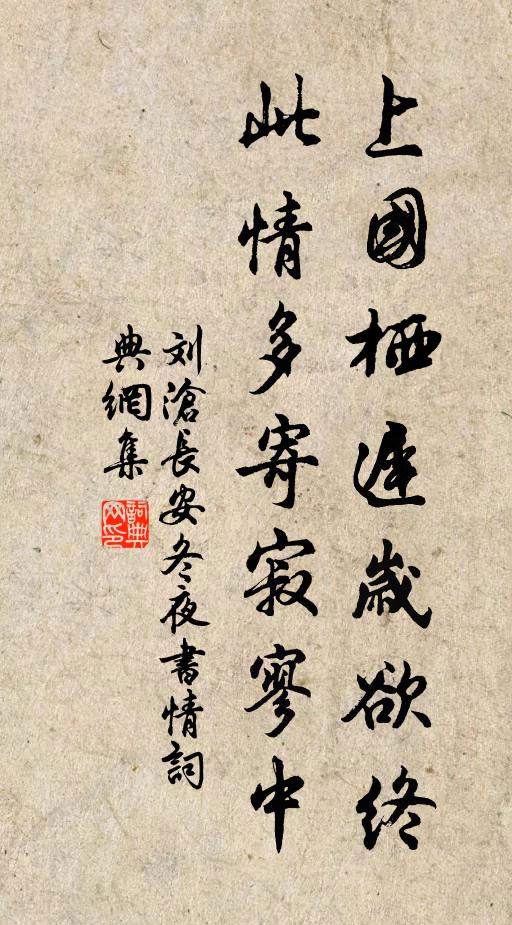 上國栖遲歲欲終
此情多寄寂寥中
刘滄長安冬夜書情詞
典網集
詞典網印